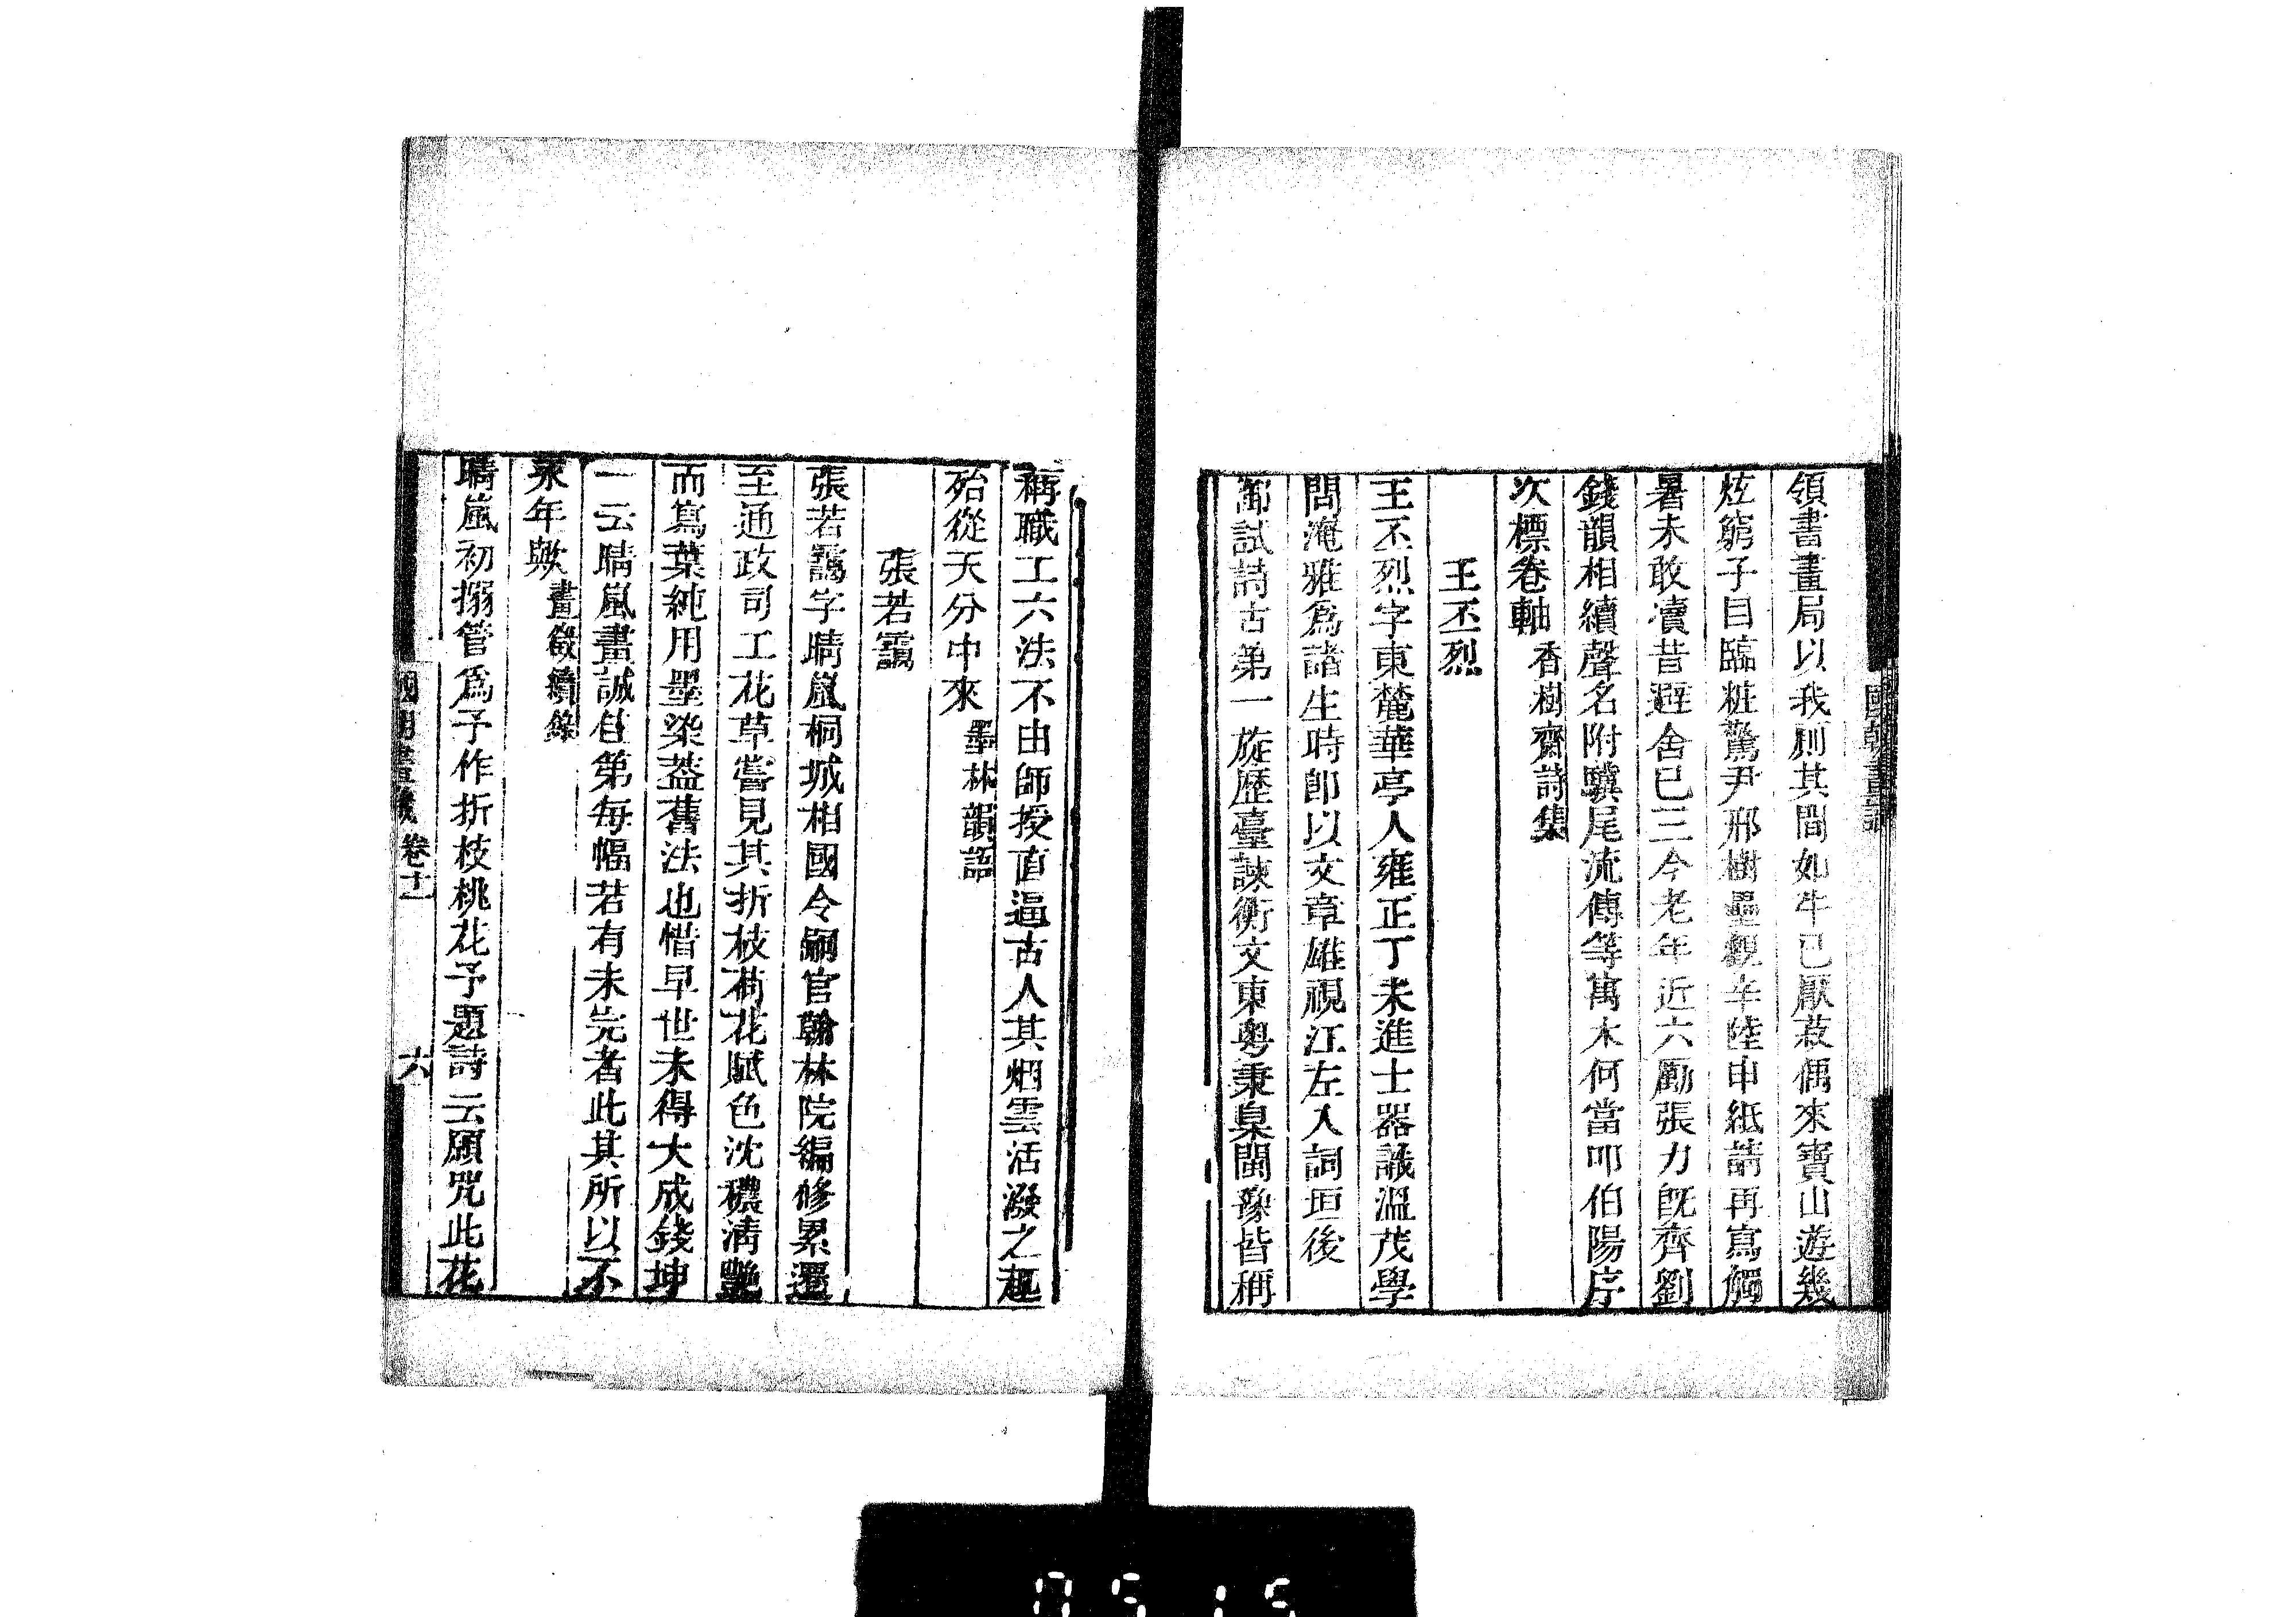 領書畫局以我厠其間如牛已厭菽偶來寶山遊幾
炫窮子目臨粧驚尹邢樹壘觀辛陸申紙請再寫觸
暑未敢凟昔避舍已三今老年近六勵張力旣齊劉
錢韻相續聲名附驥尾流傳等萬木何當叩伯陽序
次標卷軸香樹齋詩集
王丕烈
王丕烈字東麓華亭人雍正丁未進士器識溫茂學
問淹雅爲諸生時卽以文章雄視江左入詞垣後
御試詩古第一旋歷臺諫衡文東粵秉臬閩豫皆稱
稱職工六法不由師授直逼古人其烟雲活潑之趣
殆從天分中來墨林韻語
張若靄
張若靄字晴嵐桐城相國令嗣官翰林院編修累遷
至通政司工花草嘗見其折枝荷花賦色沈穠淸艷
而寫葉純用墨染葢舊法也惜早世未得大成錢坤
一云晴嵐畫誠佳第每幅若有未完者此其所以不
永年歟畫徵續錄
國朝畫識 卷十一 六
晴嵐初搦管爲予作折枝桃花予題詩云願咒此花
國朝畫識
0515